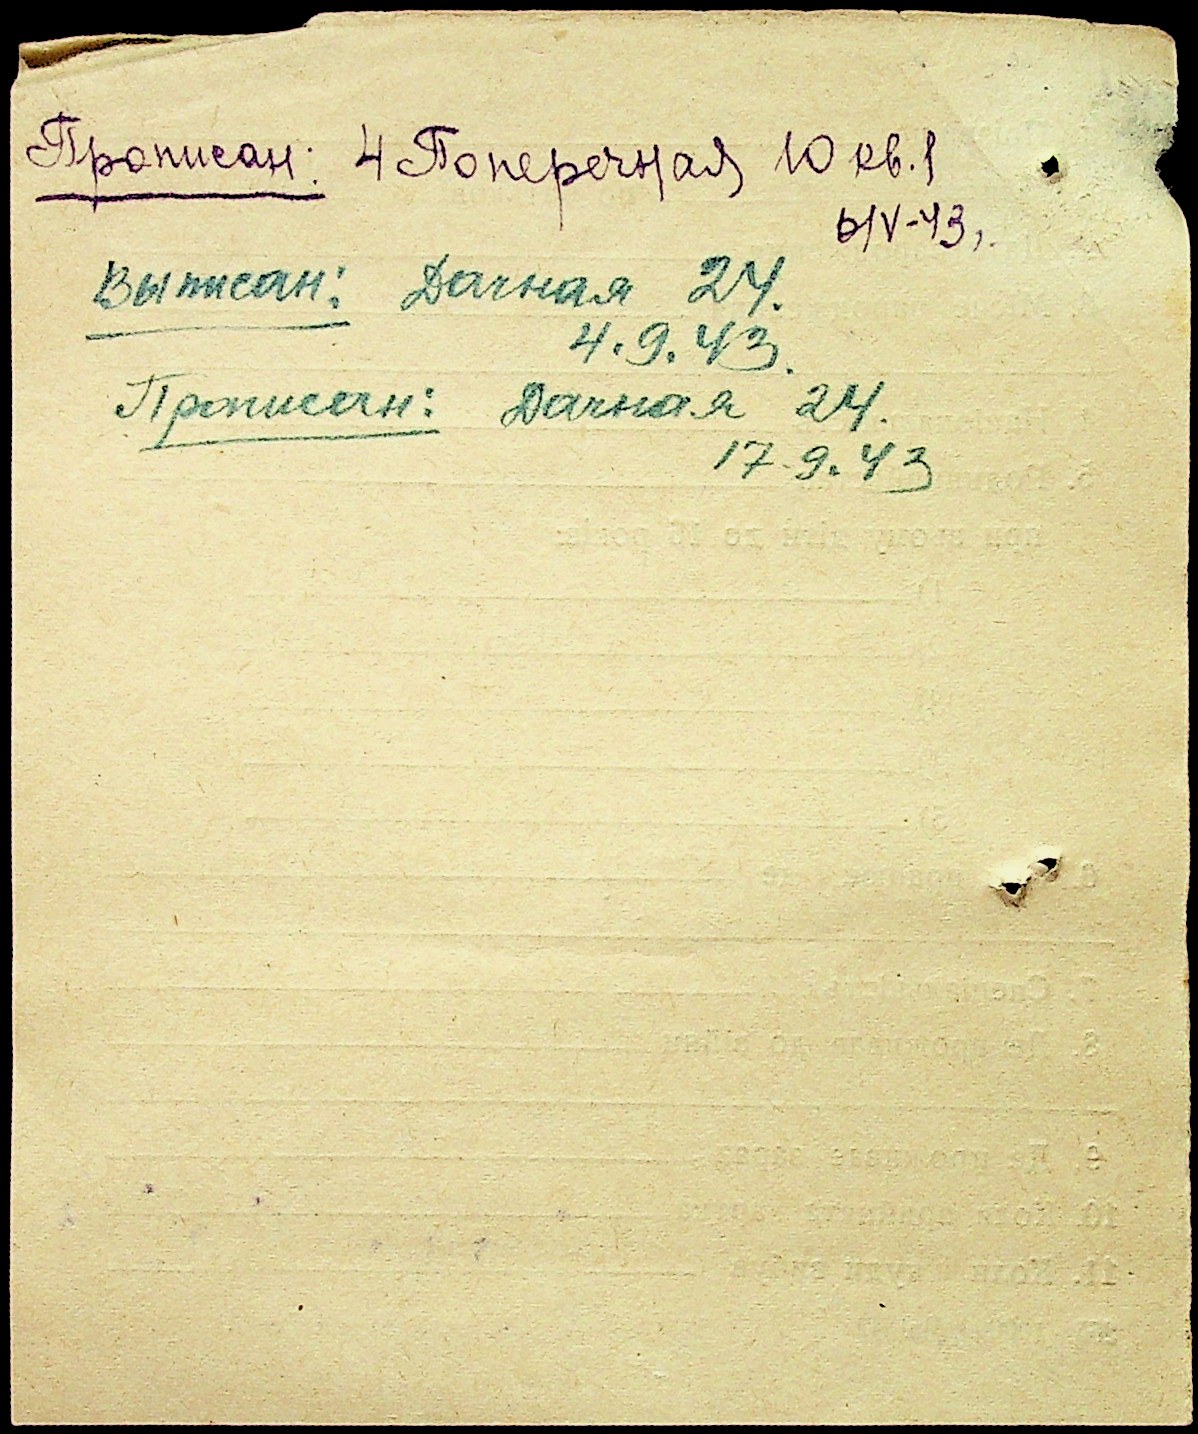 Прописан: 4 Поперечная 10 кв.1
6/V-43,
Выписан: Дачная 24.
4.9.43.
Прописан: Дачная 24.
17.9.43